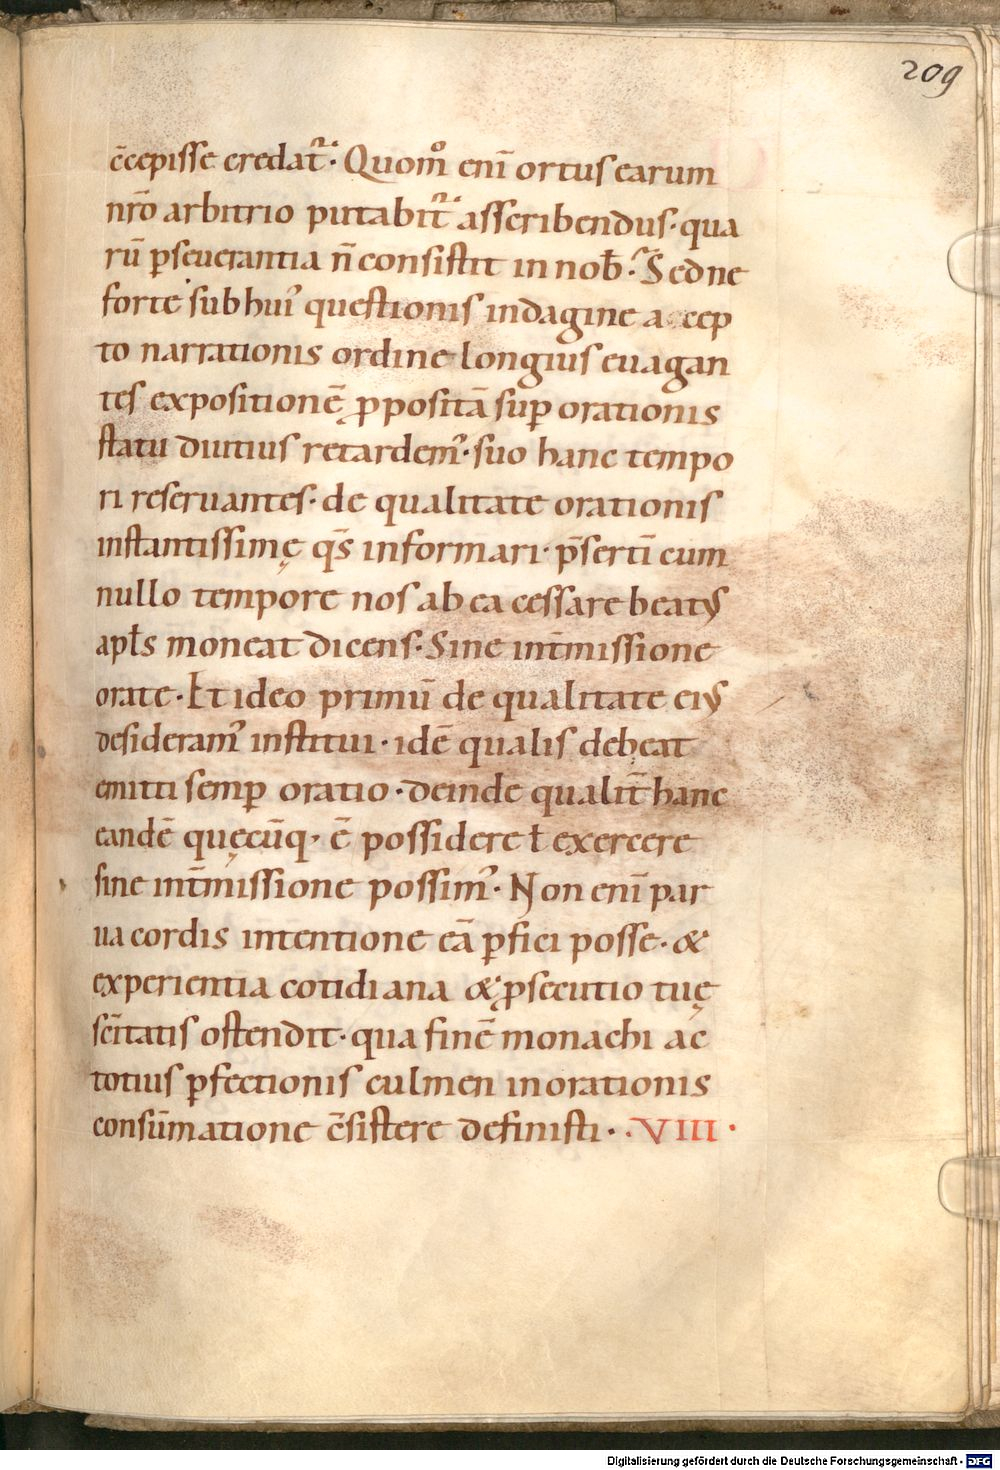 209
c̄cepisse credat᷑. Quom̊ enī ortus earum
nr̄o arbitrio putabit᷑ asscribendus. qua
rū p̱seuerantia n̄ consistit in nob̄. Sed ne
forte sub hui᾽ questionis indagine a cep
to narrationis ordine longius euagan
tes expositionē p̱positā sup̱ orationis
statu diutius retardem᾽. suo hanc tempo
ri reseruantes. de qualitate orationis
instantissimę qs̄ informari. p̄sertī cum
nullo tempore nos ab ea cessare beat᾽
apl̄s moneat dicens. Sine int̄missione
orate. Et ideo primū de qualitate ei᾽
desideram᾽ institui. idē qualis debeat
emitti semp̱ oratio. deinde qualit̄ hanc
eandē quęcūq; ē possidere ł exercere
sine int̄missione possim᾽. Non enī par
ua cordis intentione eā p̱fici posse. &
experientia cotidiana & p̱secutio tuę
sc̄itatis ostendit. qua finē monachi ac
totius p̱fectionis culmen in orationis
consūmatione c̄sistere definisti. .VIII.
Digitalisierung gefördert durch die Deutsche Forschungsgemeinschaft - DFG